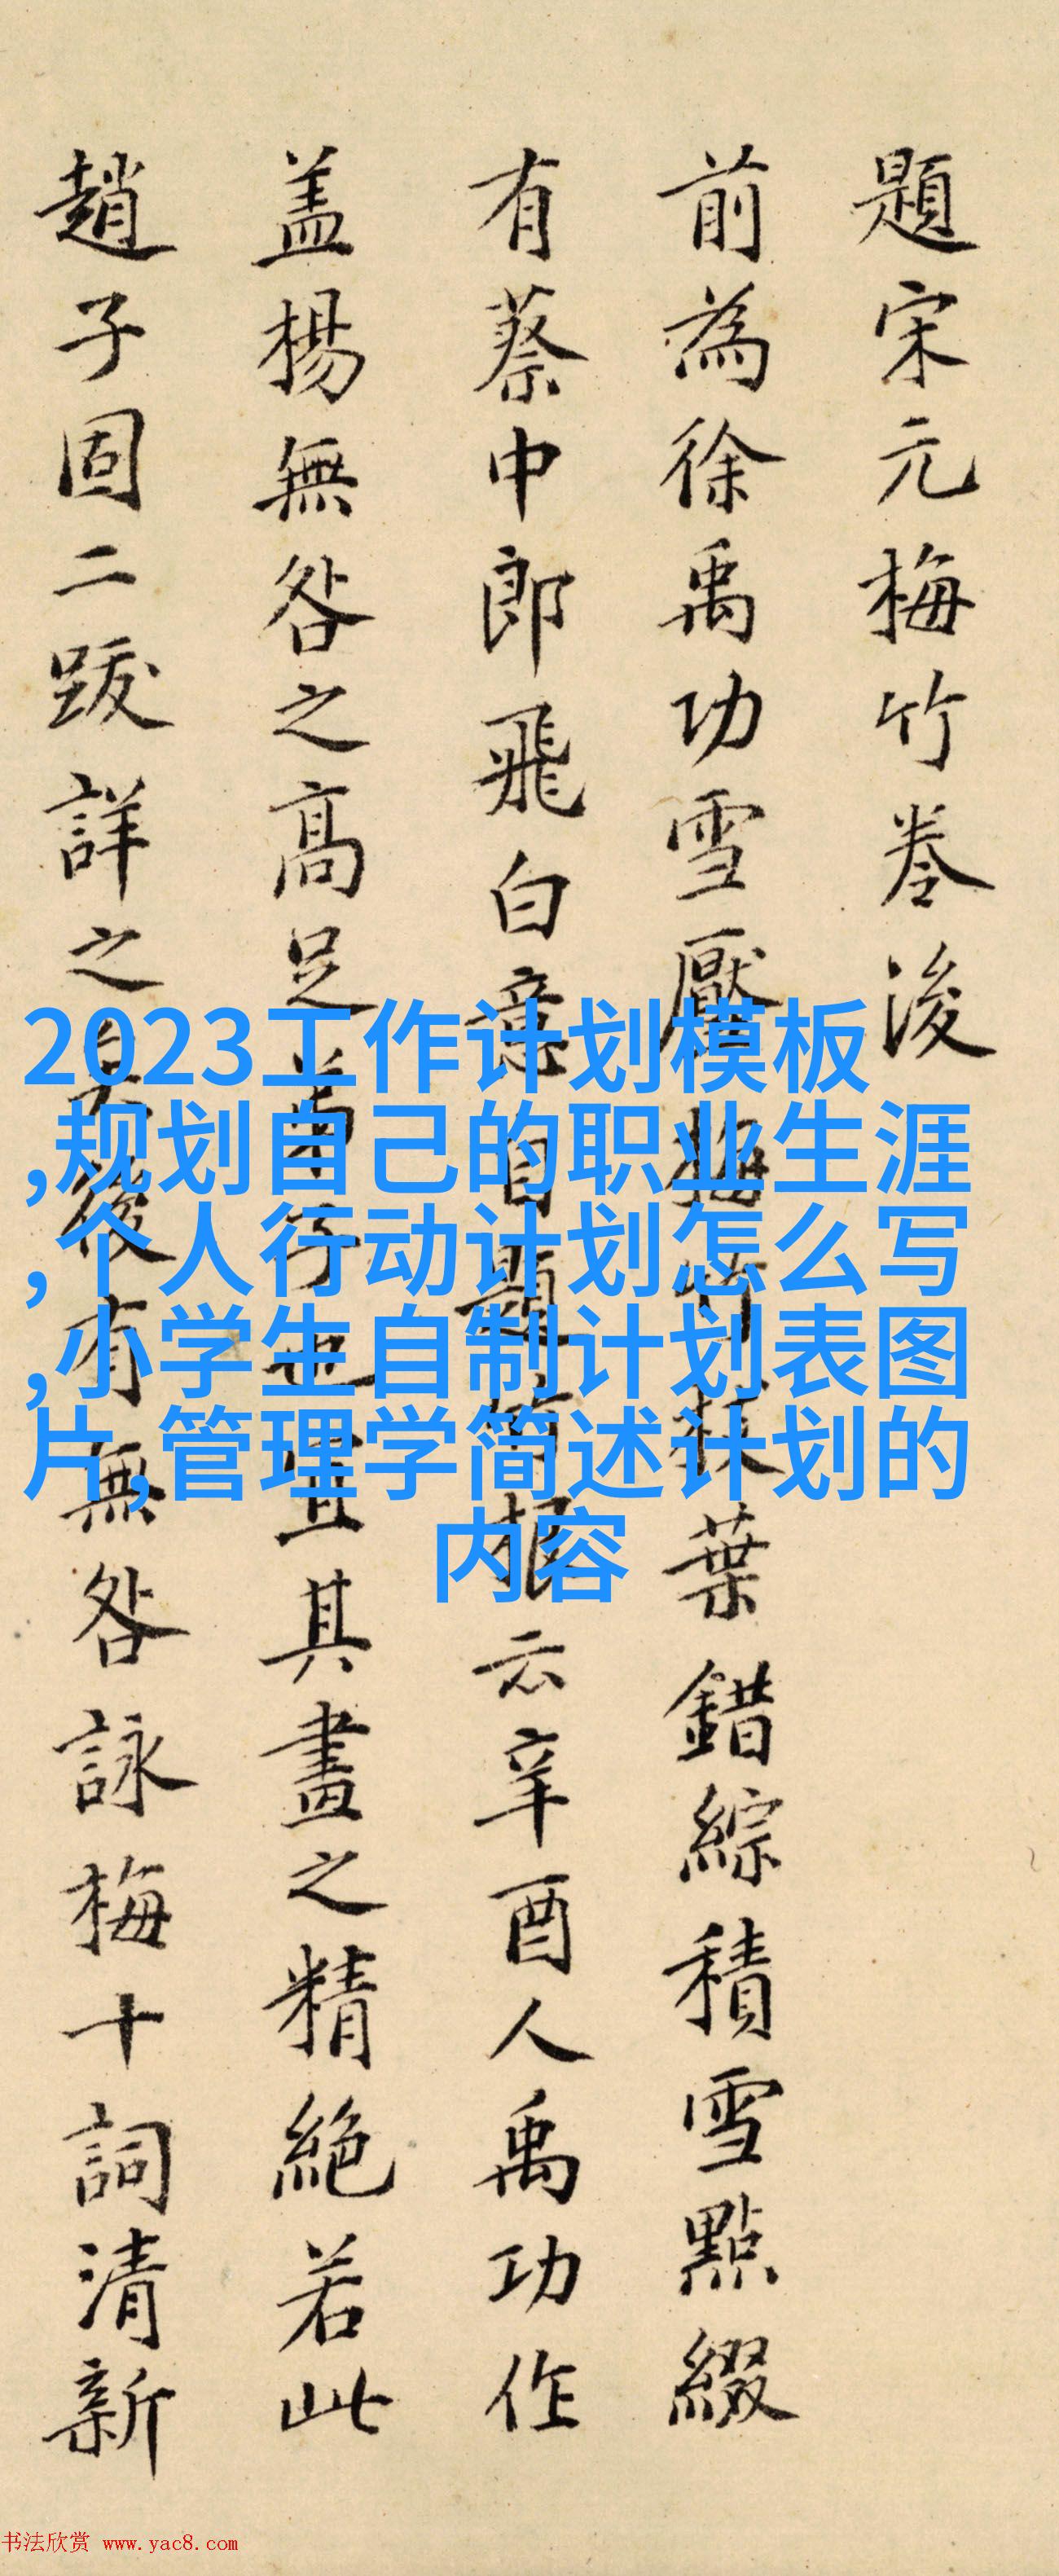 題宋元梅竹卷後
前為徐禹功雪壓梅竹枝葉錯綜積雪點綴
有蔡中郎飛白意自題竹根云辛酉人禹功作
盖楊無咎之高足弟子也宜其畫之精絶若此
趙子固二跋詳之矣後有無咎詠梅十詞清新
2023工作计划模板
,规划自己的职业生涯
,个人行动计划怎么写
,小学生自制计划表图
片,管理学简述计划的
内容
书法欣赏 www.yac8.com